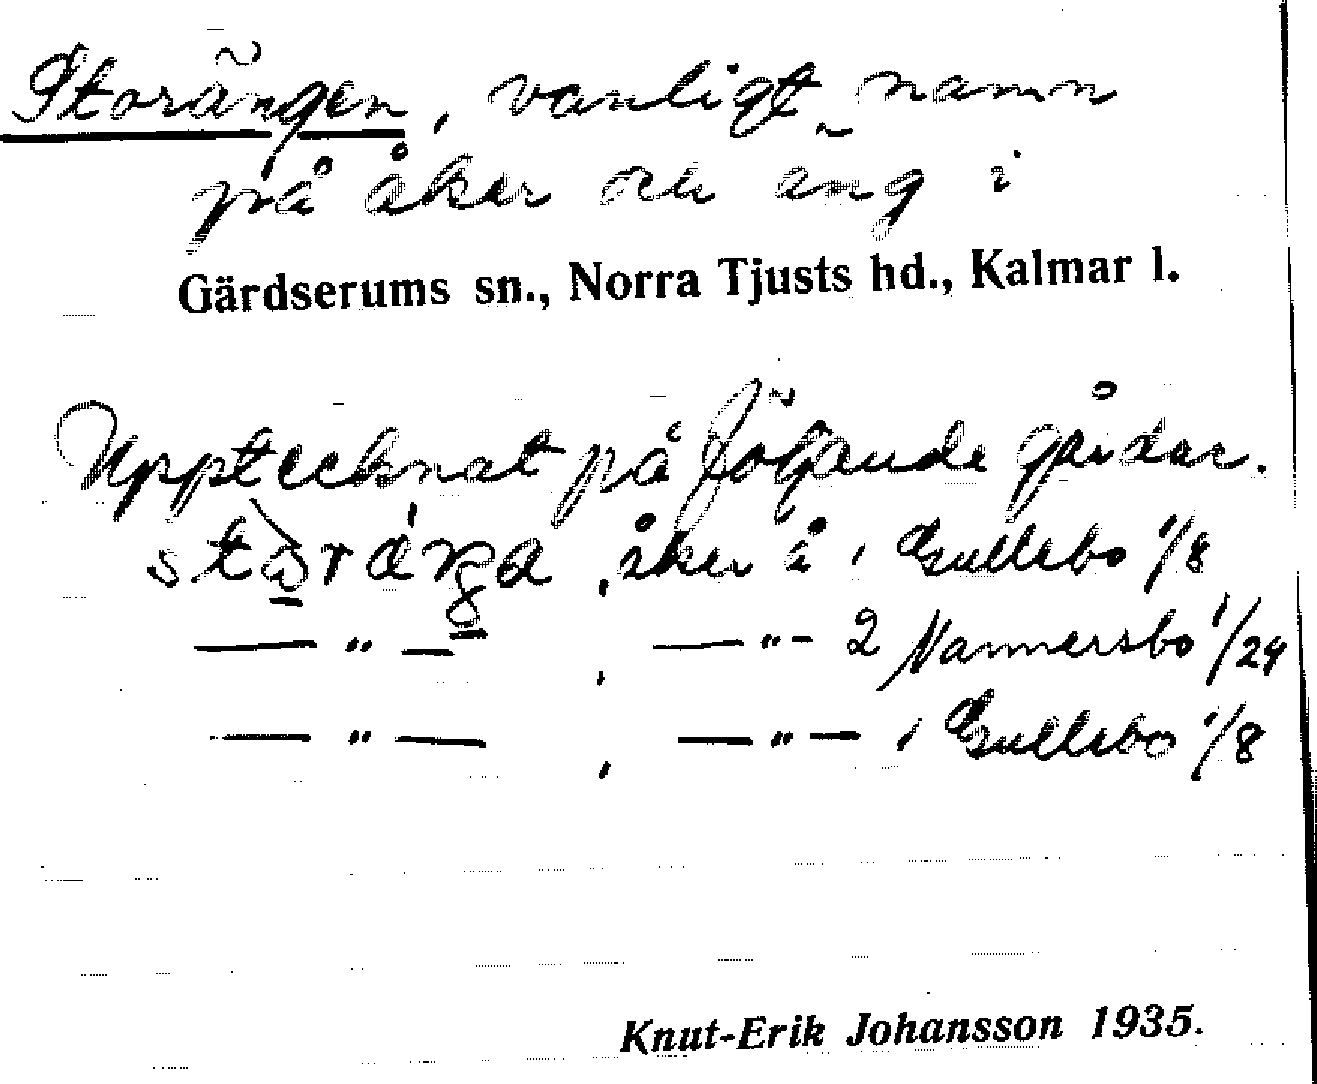 Storängen, vanligt namn
på åker och äng i
Gärdserums sn., Norra Tjusts hd., Kalmar l.
Upptecknat på följande gårdar.
åker å 1 Gullebo 1/8
— " — , — " — 2 Nammersbo 1/24
— " — , — " — 1 Gullebo 1/8
Knut-Erik Johansson 1935.